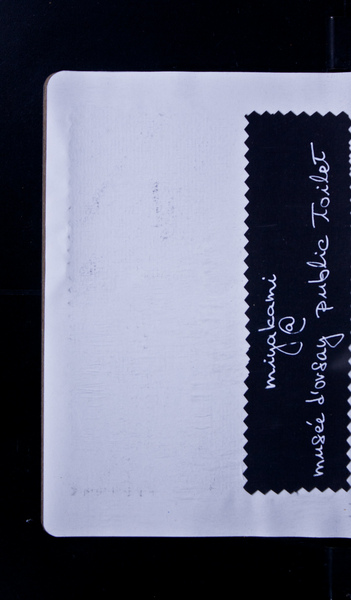 miyakami
@
musée d'orsay public toilet